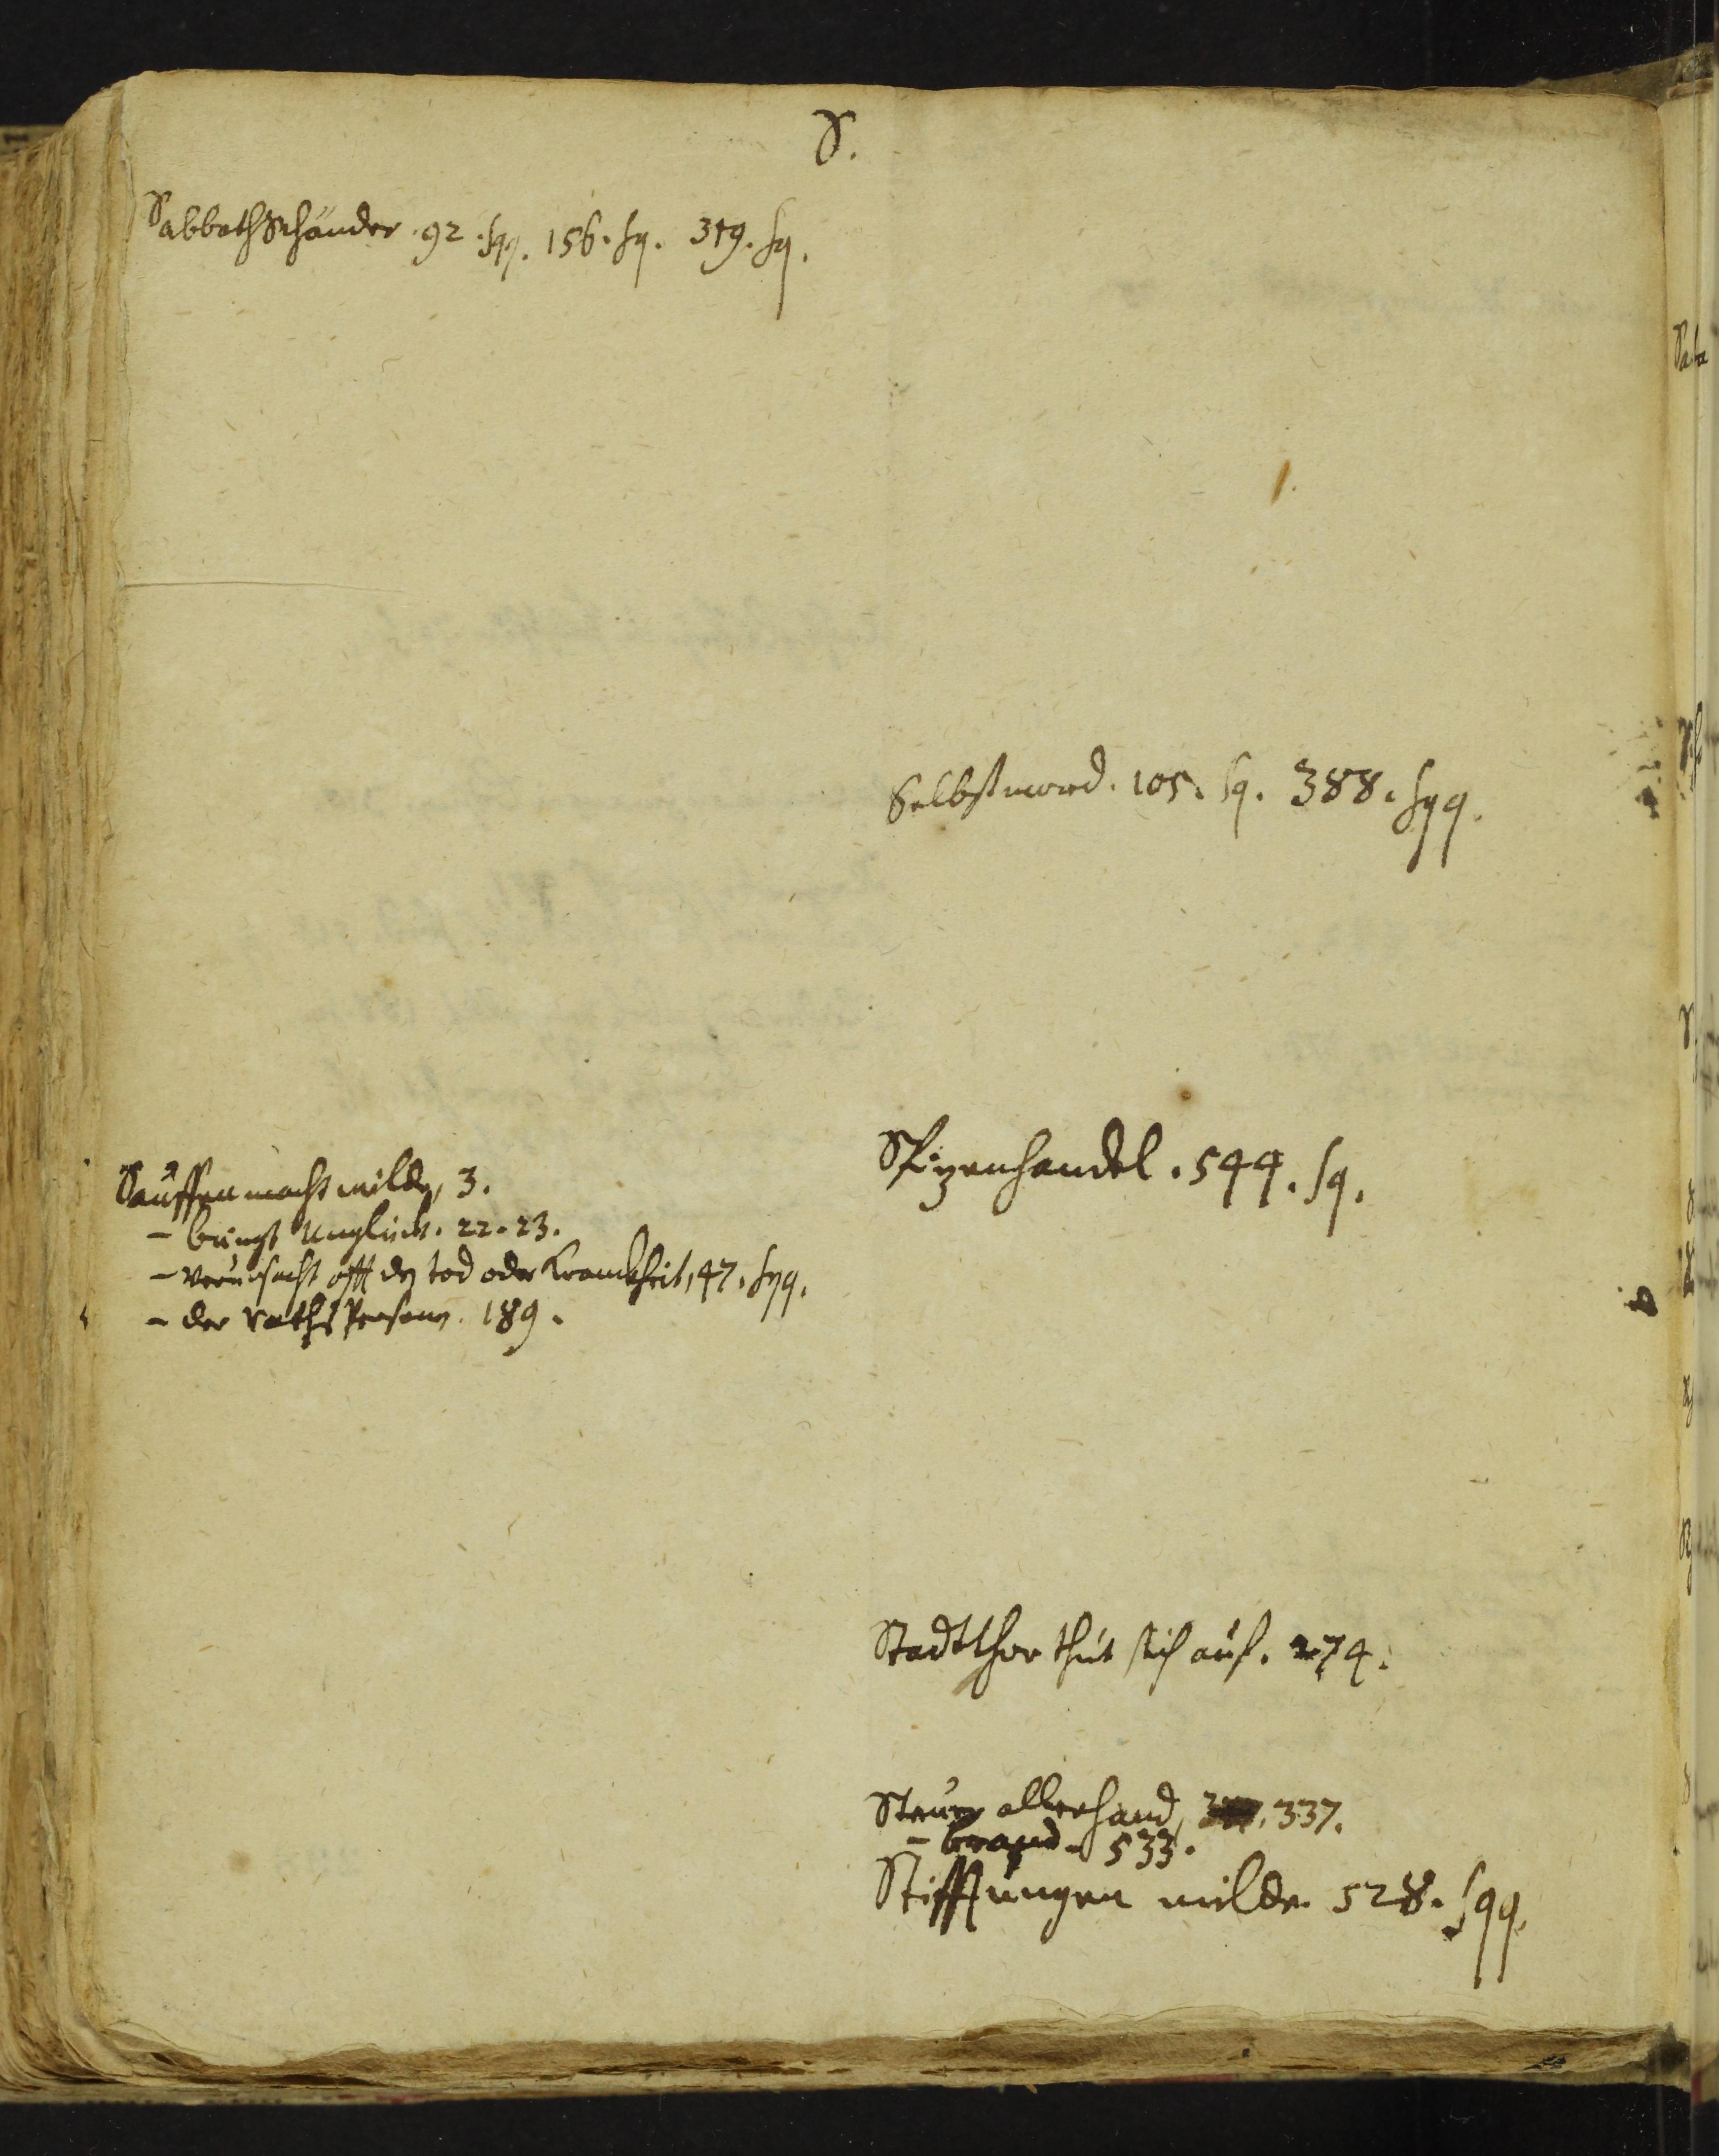 S.
SabbathSchänder. 92. sqq. 156. sq. 319. sq.
Sauffen macht milde, 3.
- bringt Unglück. 22. 23.
- verursacht offt den tod oder Kranckheit, 47. sqq.
- der Raths Persone. 189.
Selbstmord. 105. sq. 388. sqq.
Spizenhandel. 544. sq.
Stadtthor thut sich auf. 274.
Steuer allerhand, 337.
- brand. 533.
Stifftungen milde 528. sqq.